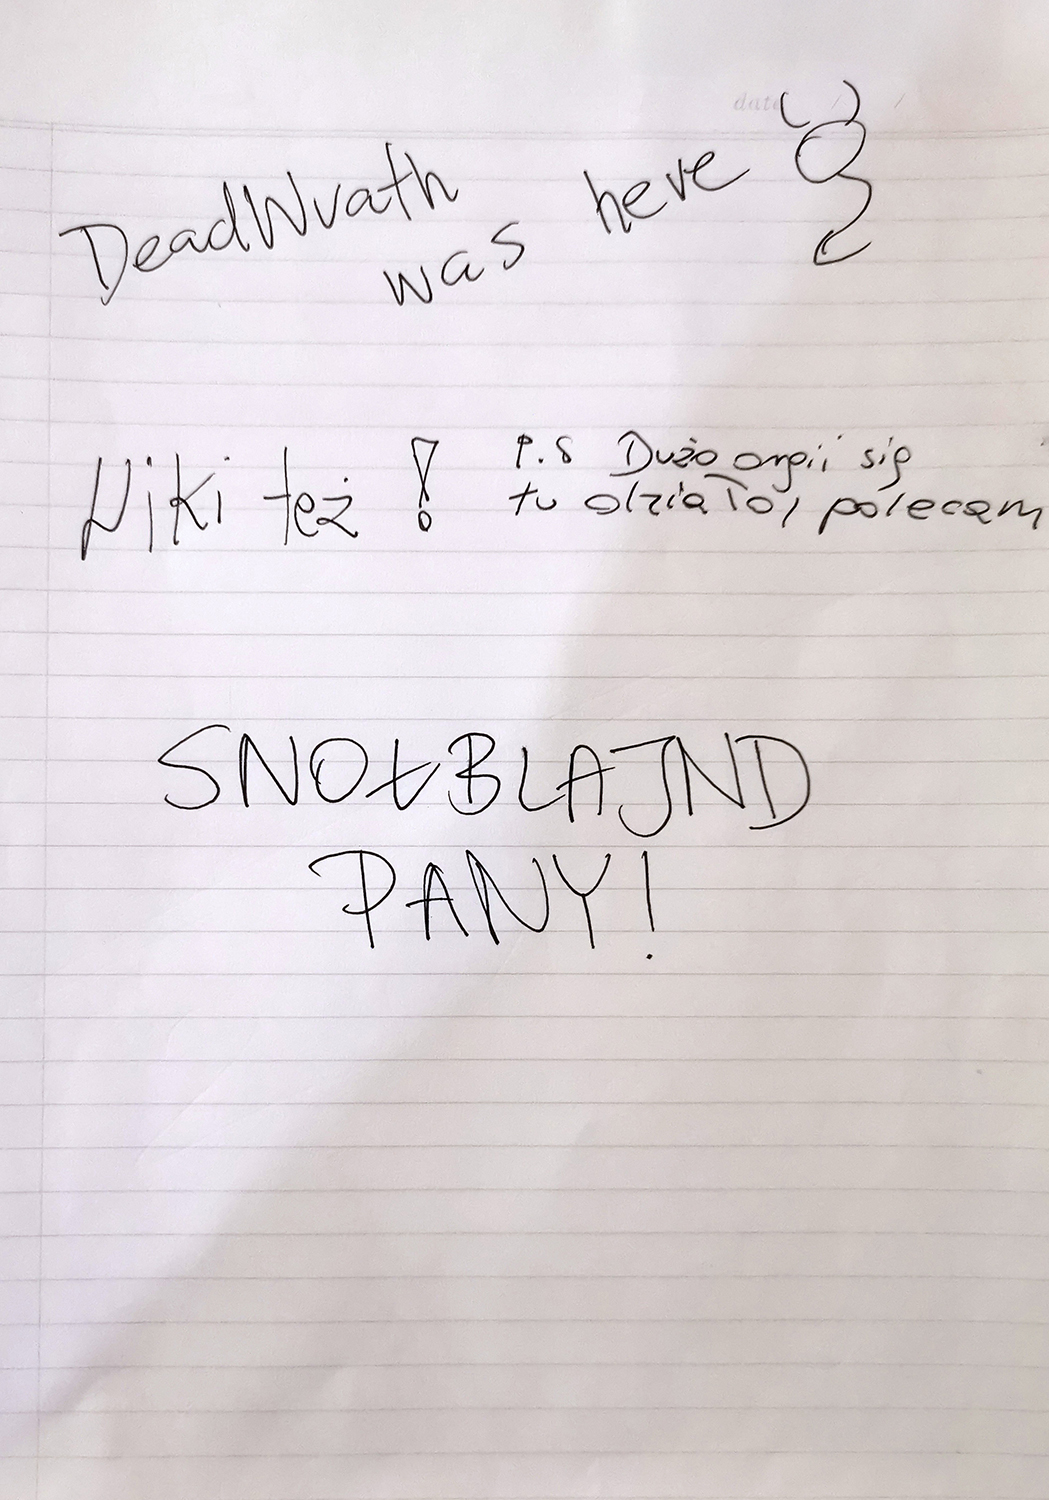 date / /
DeadWrath
was here
Niki też!
P.S Dużo orgii się
tu działo, polecam
SNOŁBLAJND
PANY!